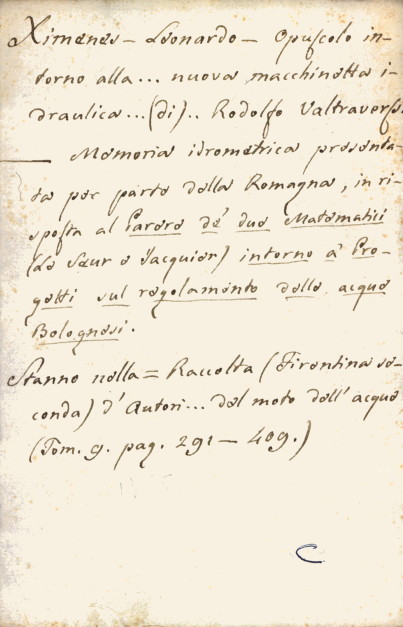 Ximenes - Leonardo - Opuscolo in-
torno alla... nuova macchinetta i-
draulica... (di).. Rodolfo Valtravers.
— Memoria idrometrica presenta-
ta per parte della Romagna, in ri-
sposta al Parere de' due Matematici
(Le Seur e Jacquier) intorno a' Pro-
getti sul regolamento delle acque
Bolognesi.
Stanno nella = Raccolta (Fiorentina se-
conda) d'Autori... del moto dell'acque
(Tom. 9. pag. 291 — 409.)
C